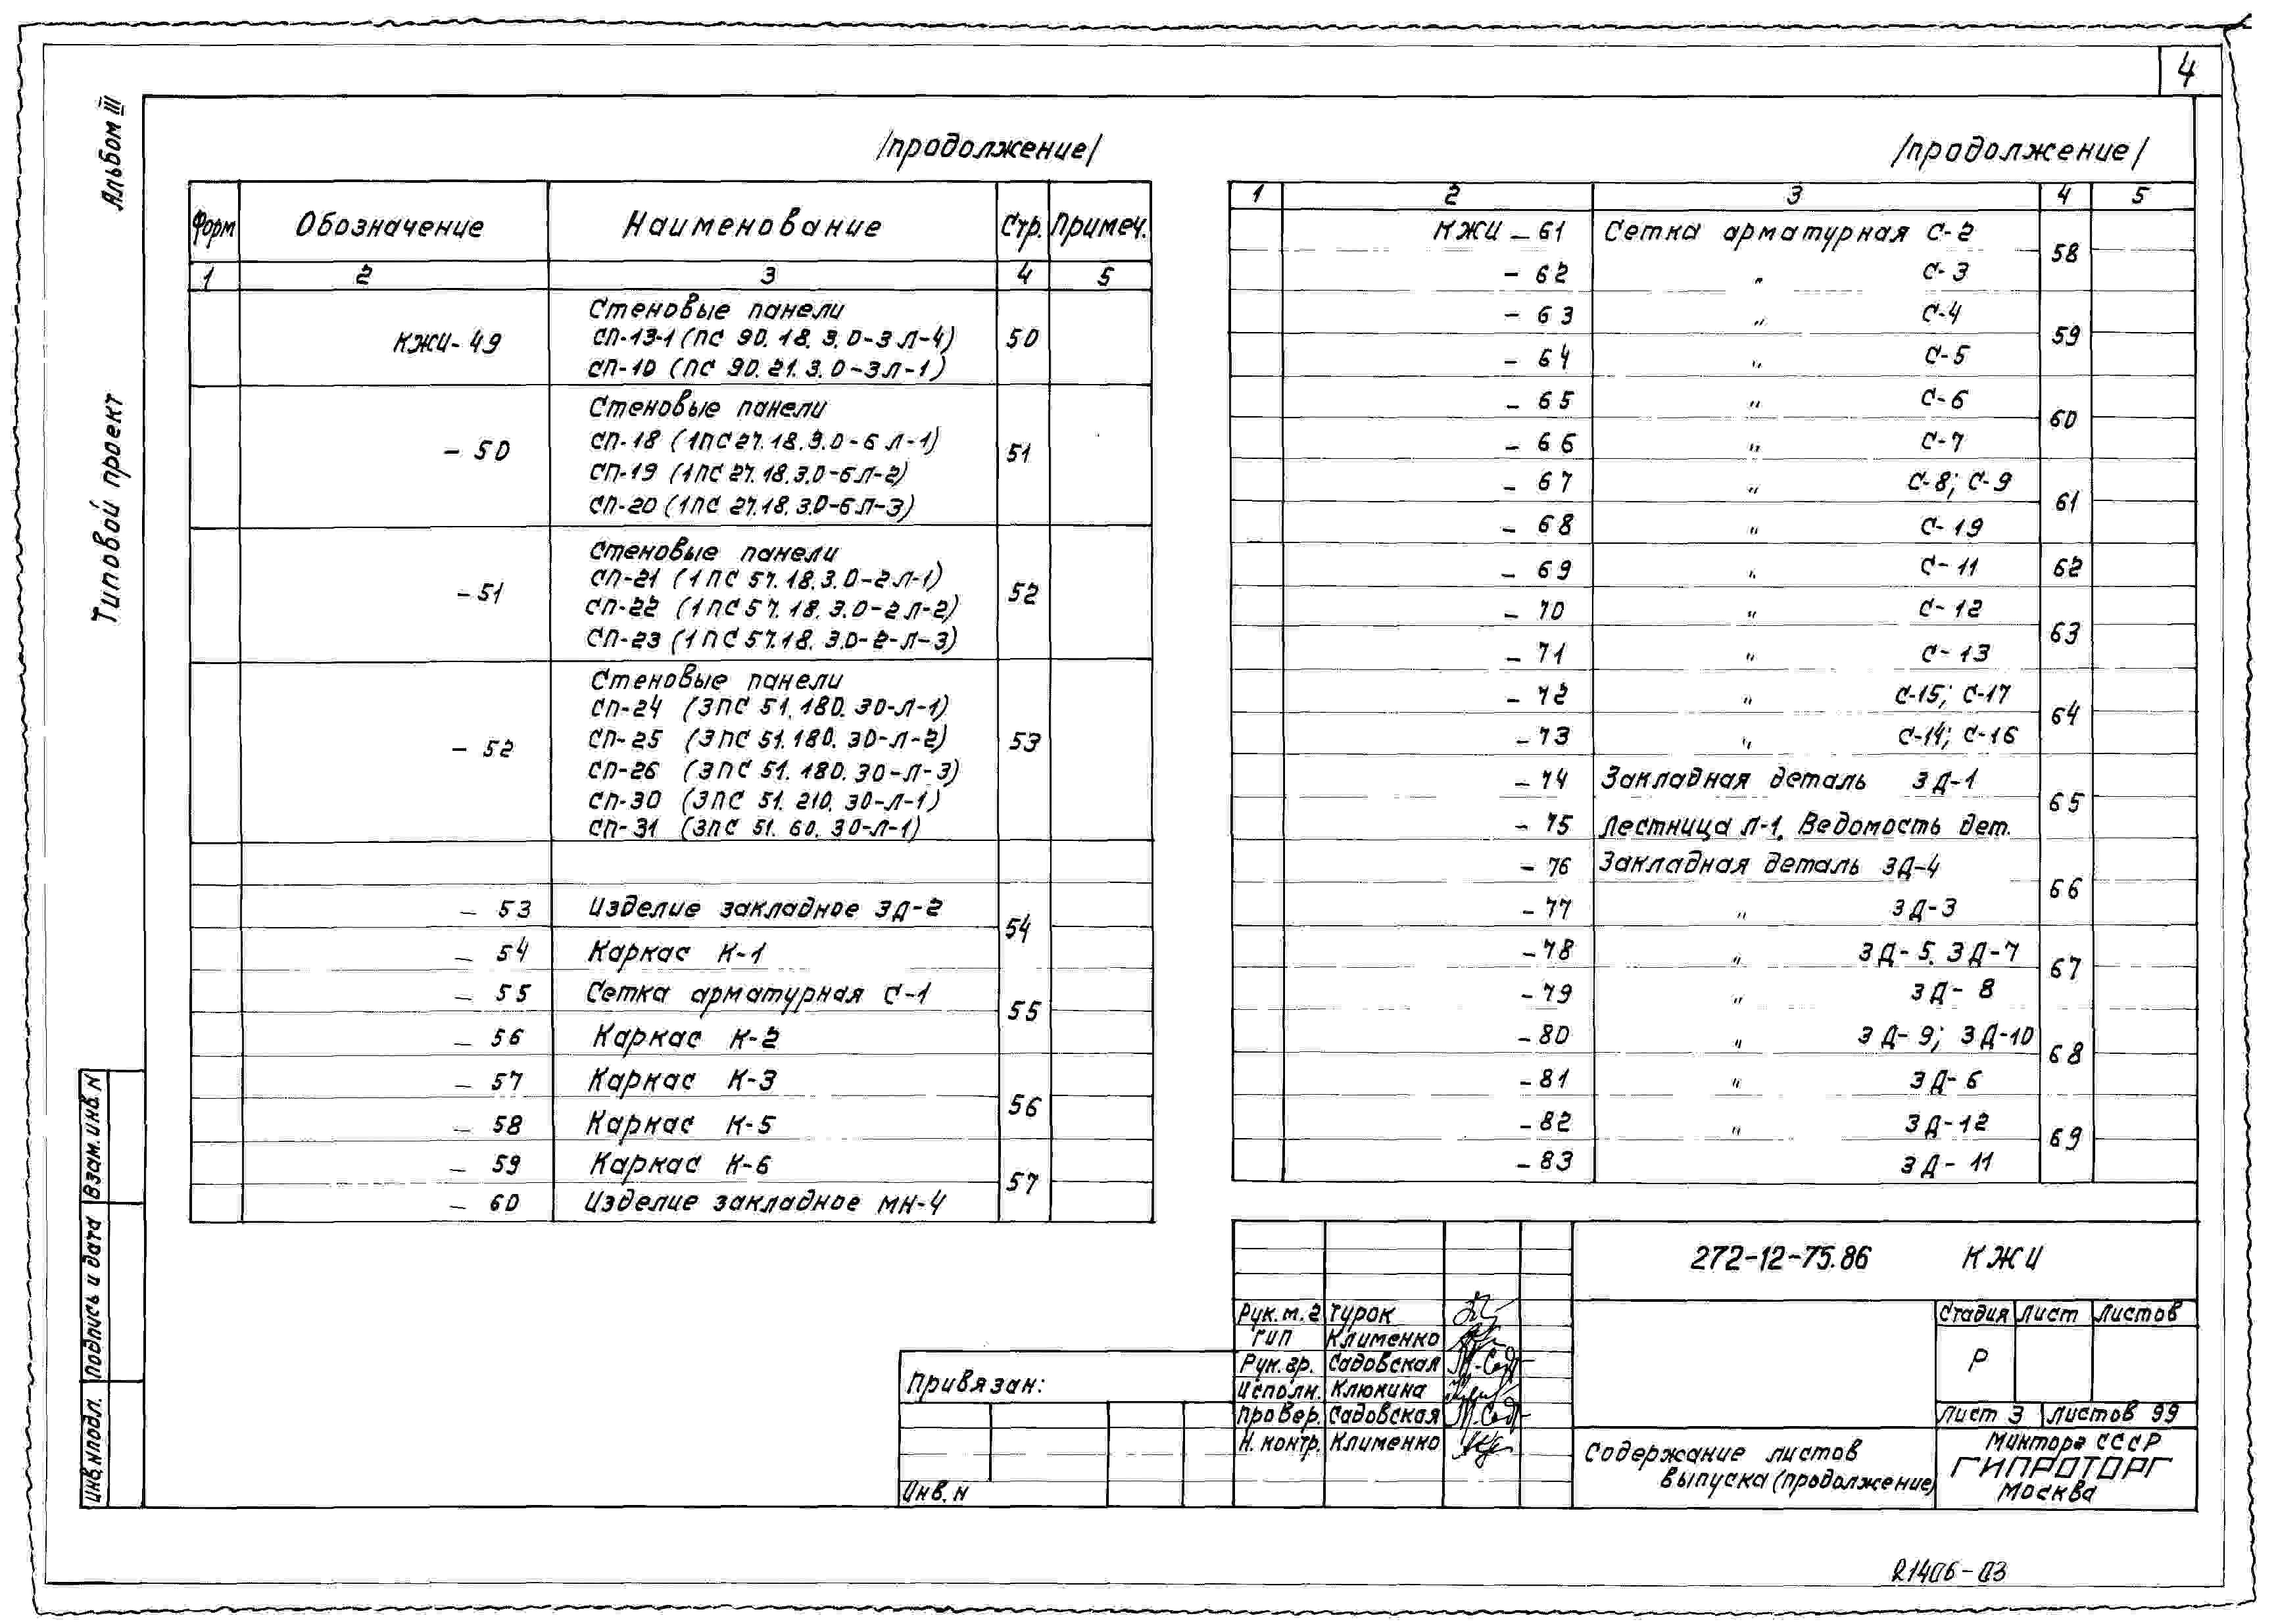 4
Альбом III
Типовой проект
/продолжение/
Форм Обозначение Наименование Стр. Примеч.
1 2 3 4 5
Стеновые панели
КЖИ-49 СП-13-1 (ПС 90.18.3.0-3Л-4) 50
СП-10 (ПС 90.21.3.0-3Л-1)
Стеновые панели
СП-18 (1ПС27.18.3.0-6Л-1)
- 50 51
СП-19 (1ПС 27.18.3.0-6Л-2)
СП-20 (1ПС 27.18.3.0-6Л-3)
Стеновые панели
СП-21 (1ПС 57.18.3.0-2Л-1)
- 51 52
СП-22 (1ПС 57.18.3.0-2Л-2)
СП-23 (1ПС 57.18.3.0-2-Л-3)
Стеновые панели
СП-24 (3ПС 51.180.30-Л-1)
СП-25 (3ПС 51.180.30-Л-2)
- 52 53
СП-26 (3ПС 51.180.30-Л-3)
СП-30 (3ПС 51.210.30-Л-1)
СП-31 (3ПС 51.60.30-Л-1)
- 53 Изделие закладное ЗД-2
54
- 54 Каркас К-1
- 55 Сетка арматурная С-1
55
- 56 Каркас К-2
- 57 Каркас К-3
56
- 58 Каркас К-5
- 59 Каркас К-6
57
- 60 Изделие закладное МН-4
/продолжение/
1 2 3 4 5
КЖИ - 61 Сетка арматурная С-2
58
- 62 " С-3
- 63 " С-4
59
- 64 " С-5
- 65 " С-6
60
- 66 " С-7
- 67 " С-8; С-9
61
- 68 " С-19
- 69 " С-11 62
- 70 " С-12
63
- 71 " С-13
- 72 " С-15; С-17
64
- 73 " С-14; С-16
- 74 Закладная деталь ЗД-1
65
- 75 Лестница Л-1. Ведомость дет.
- 76 Закладная деталь ЗД-4
66
- 77 " ЗД-3
- 78 " ЗД-5. ЗД-7
67
- 79 " ЗД-8
- 80 " ЗД-9; ЗД-10
68
- 81 " ЗД-6
- 82 " ЗД-12
69
- 83 ЗД-11
272-12-75.86 КЖИ
Рук.м.2 Турок
ГИП Клименко
Рук.гр. Садовская
Исполн. Клюкина
Провер. Садовская
Н.контр. Клименко
Стадия Лист Листов
Р
Лист 3 Листов 99
Содержание листов
выпуска (продолжение)
Минторг СССР
ГИПРОТОРГ
Москва
Привязан:
Инв.N
Взам.инв.N
Подпись и дата
Инв.Nподл.
21406-03